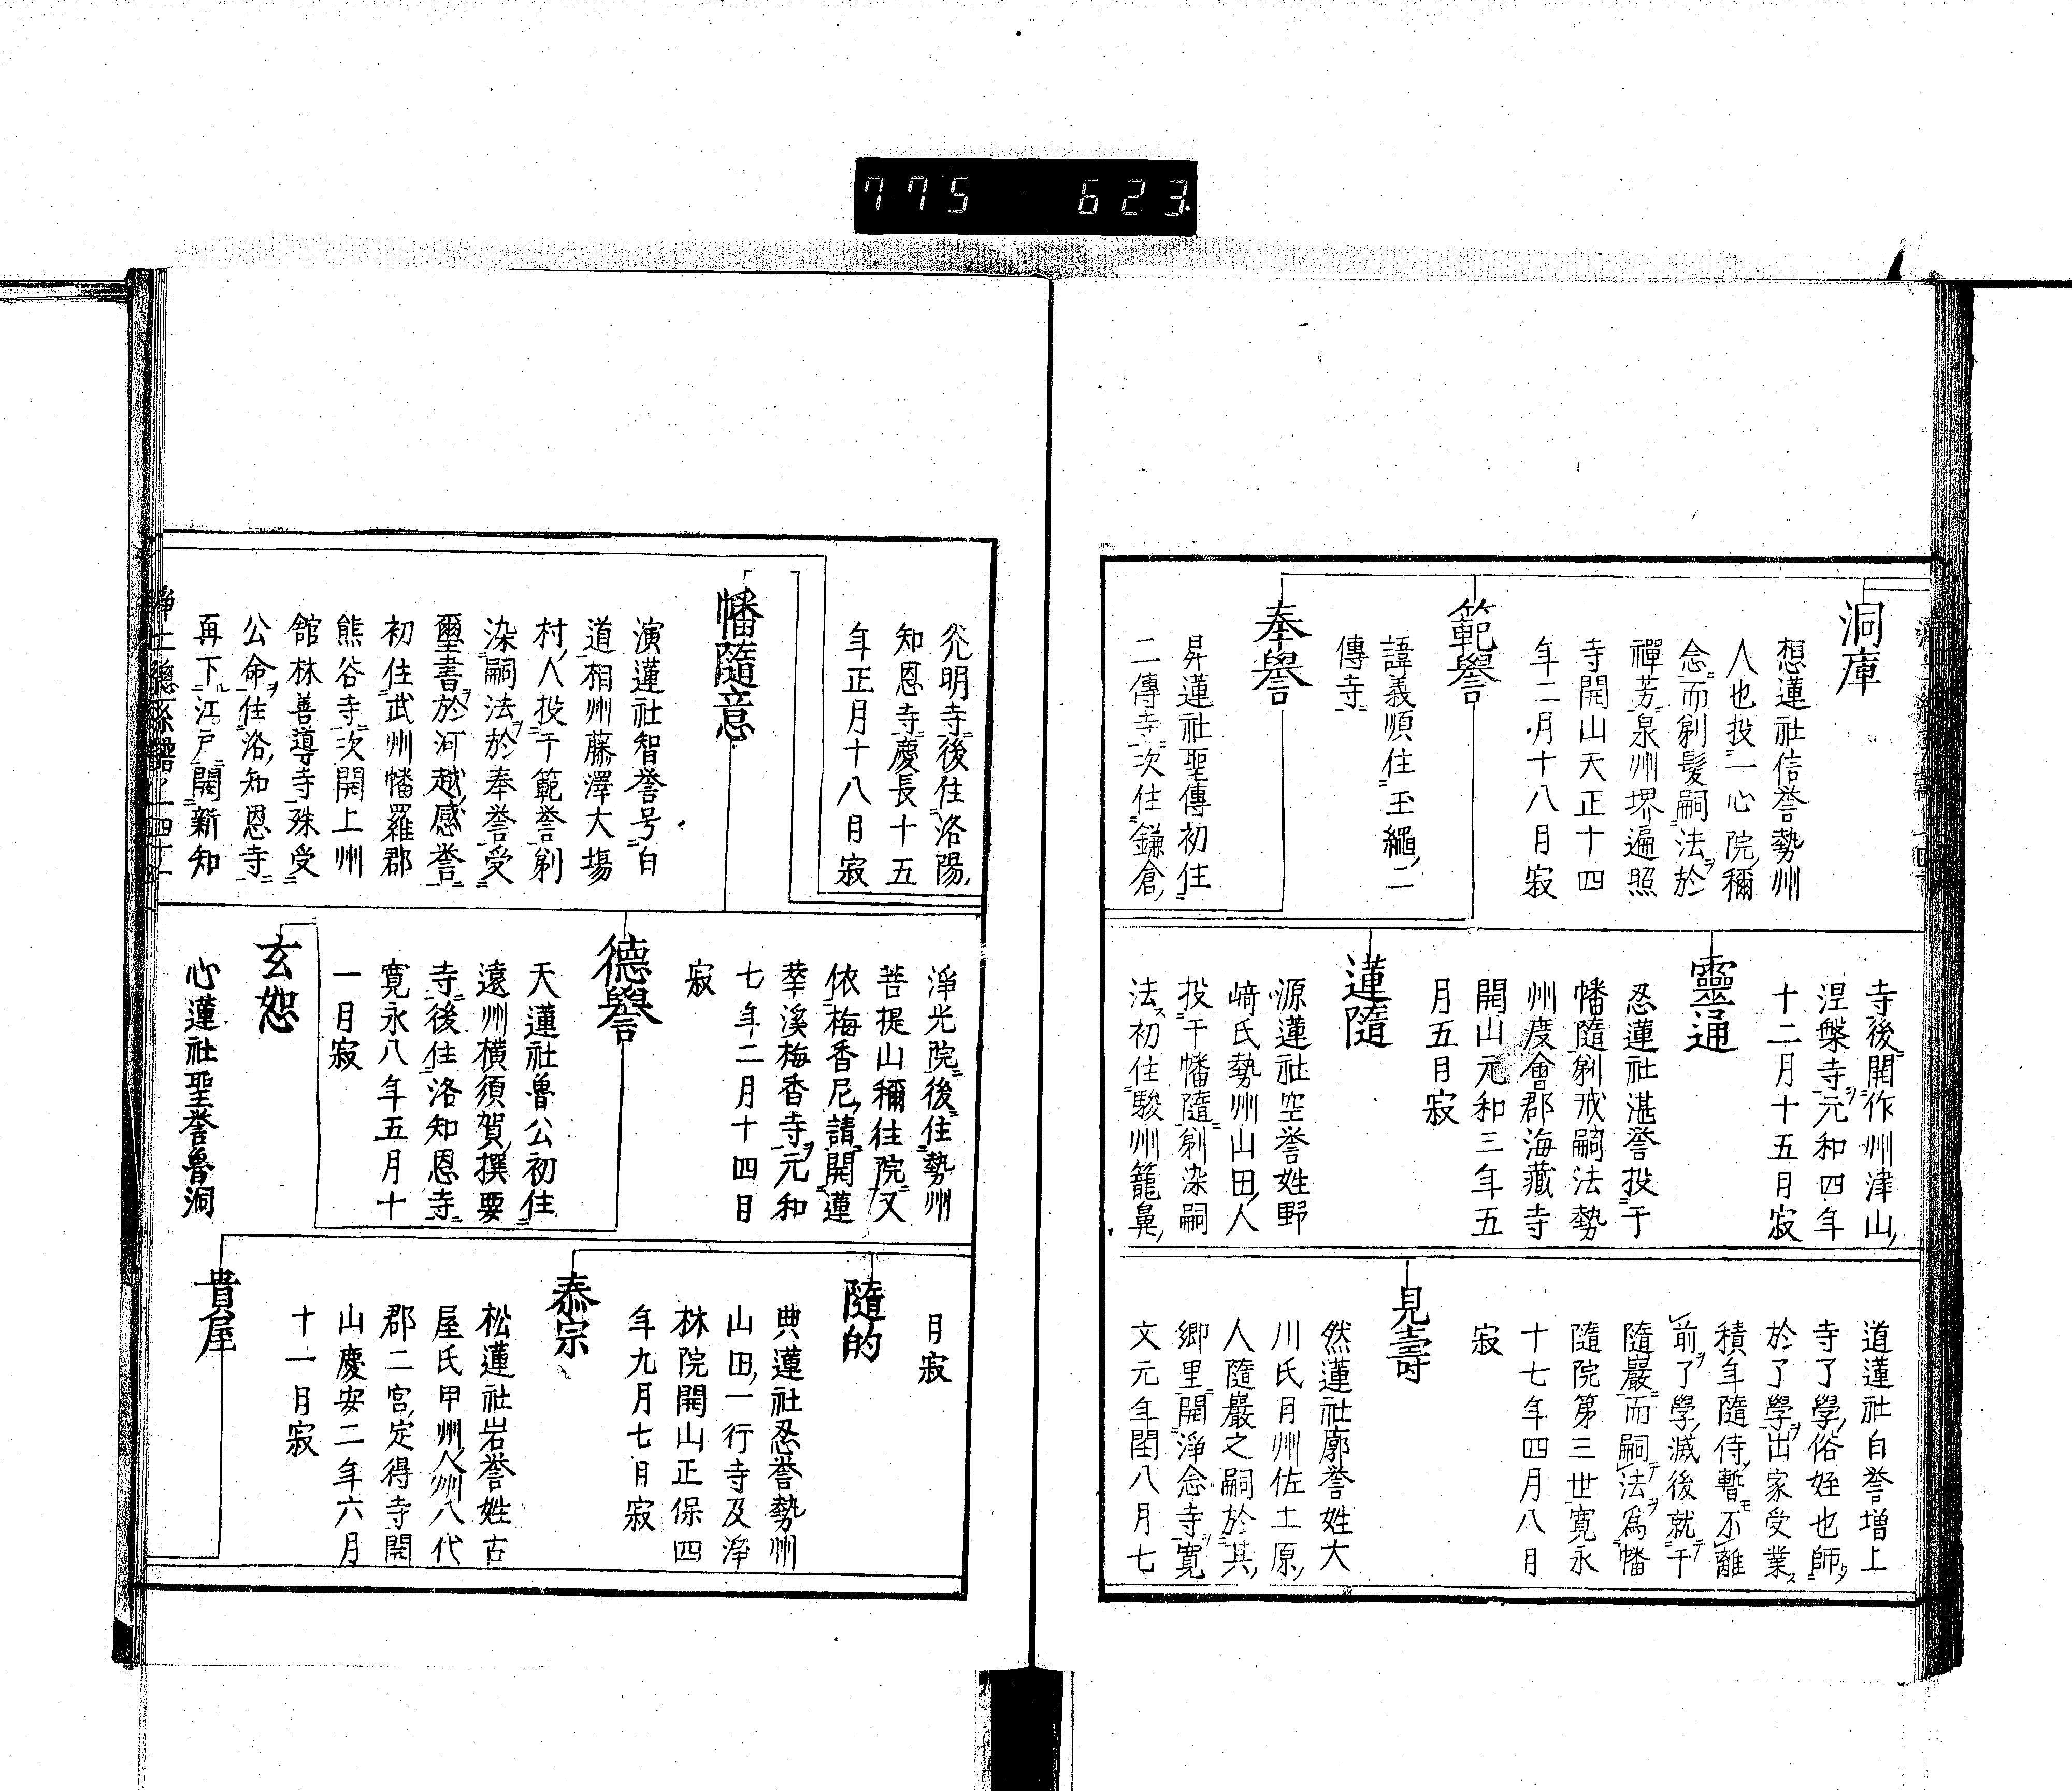 775 623
洞庫
想蓮社信誉勢州
人也投一心院稱
念而剃髪嗣法於
禪芳泉州堺遍照
寺開山天正十四
年二月十八日寂
範譽
諱義順住玉繩二
傳寺
奉譽
昇蓮社聖傳初住
二傳寺次住鎌倉
寺後開作州津山
涅槃寺元和四年
十二月十五日寂
靈通
忍蓮社湛誉投于
幡隨剃戒嗣法勢
州度會郡海藏寺
開山元和三年五
月五日寂
蓮隨
源蓮社空誉姓野
﨑氏勢州山田人
投于幡隨剃染嗣
法初住駿州籠鼻
道蓮社白誉增上
寺了學俗姪也師
於了學出家受業
積年隨侍暫不離
前了學滅後就于
隨巖而嗣法為幡
隨院第三世寛永
十七年四月八日
寂
見壽
然蓮社廓誉姓大
川氏日州佐土原
人隨巖之嗣於其
郷里開淨念寺寛
文元年閏八月七
光明寺後住洛陽
知恩寺慶長十五
年正月十八日寂
幡隨意
演蓮社智誉号白
道相州藤澤大塲
村人投于範誉剃
染嗣法於奉誉受
璽書於河越感誉
初住武州幡羅郡
熊谷寺次開上州
館林善導寺殊受
公命住洛知恩寺
再下江戸開新知
淨光院後住勢州
菩提山稱往院又
依梅香尼請開蓮
華溪梅香寺元和
七年二月十四日
寂
德譽
天蓮社魯公初住
遠州横須賀撰要
寺後住洛知恩寺
寛永八年五月十
一日寂
玄恕
心蓮社聖誉魯洞
日寂
隨的
典蓮社忍誉勢州
山田一行寺及淨
林院開山正保四
年九月七日寂
泰宗
松蓮社岩誉姓古
屋氏甲州人州八代
郡二宮定得寺開
山慶安二年六月
十一日寂
貴屋